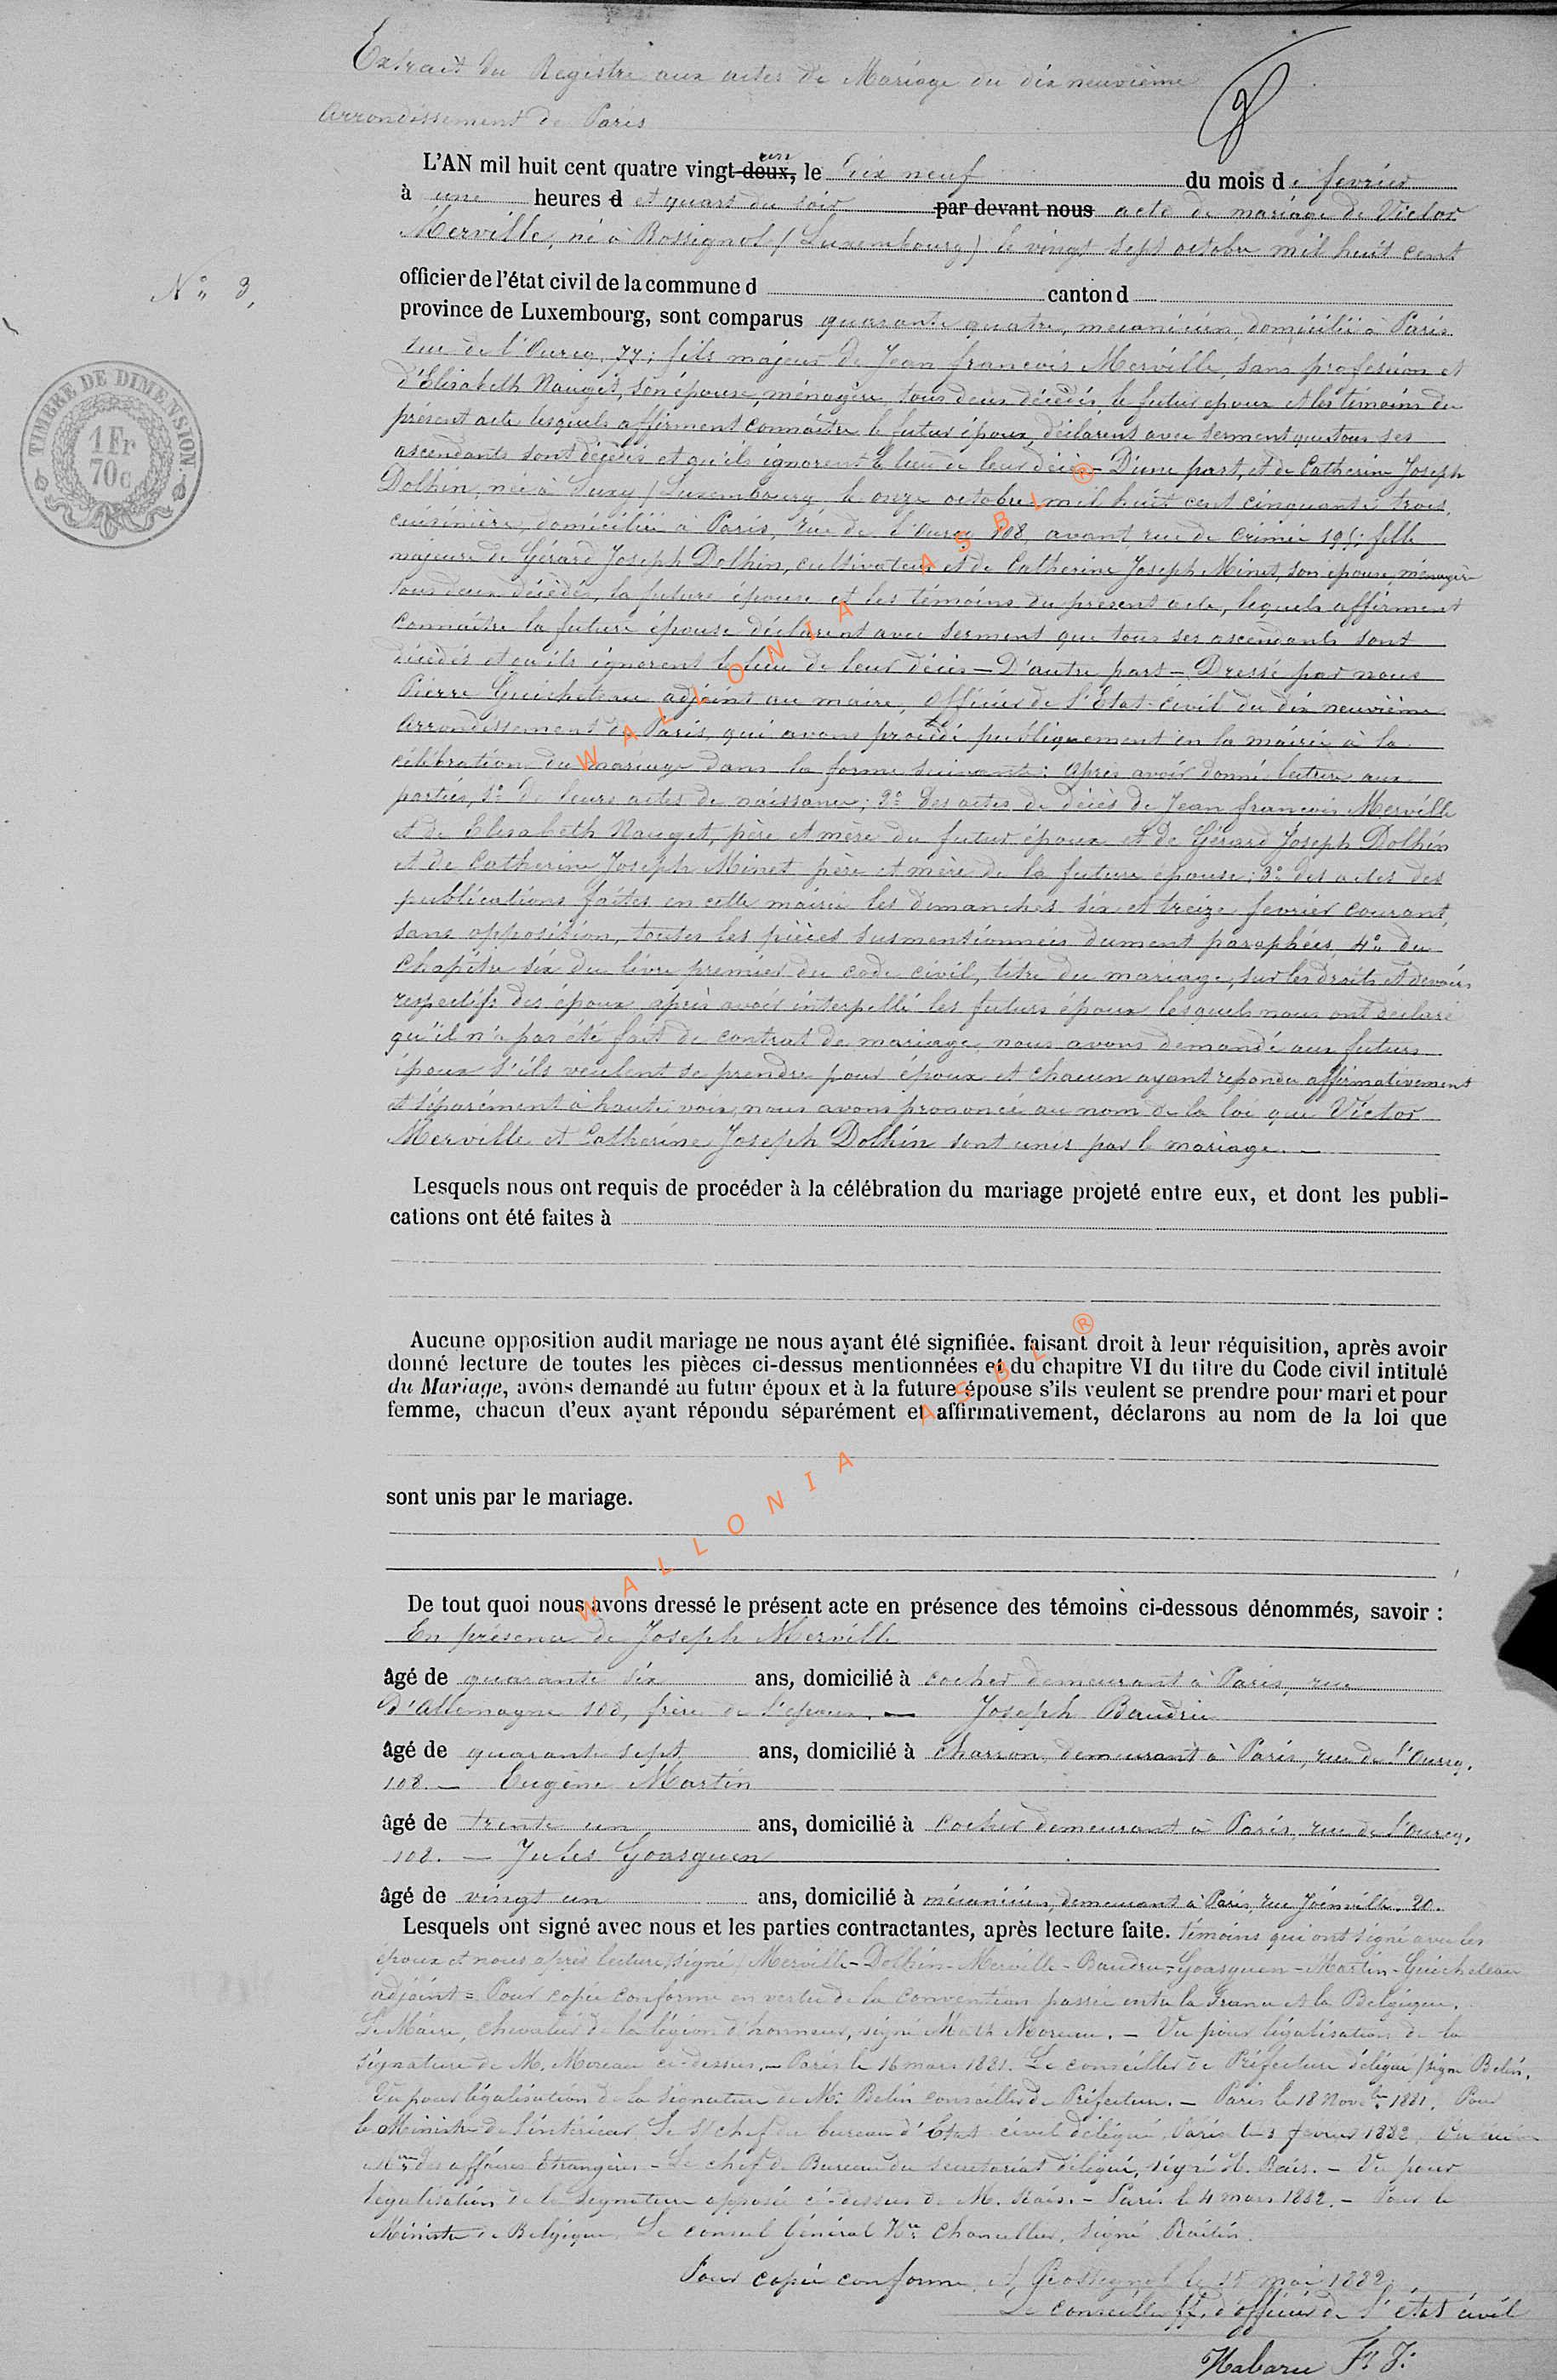 Extrait du Registre aux actes de Mariage du dix neuvième
arrondissement de Paris
L'AN mil huit cent quatre vingt-deux, un le dix neuf du mois de fevrier
à une heures d et quart du soir par devant nous acte de mariage de Victor
Merville, né à Rossignol (Luxembourg) le vingt sept octobre mil huit cent
N° 3,
officier de l'état civil de la commune d canton d
province de Luxembourg, sont comparus quarante quatre, mecanicien, domicilié à Paris
rue de l'Ourcq, 77; fils majeur de Jean francois Merville, sans profession et
d'Elisabeth Nauget, son épouse, ménagère tous deux décédés, le futur epoux et les témoins du
présent acte lesquels affirment connaître le futur époux, déclarent avec serment que tous ses
ascendants sont décédés et qu'ils ignorent le lieu de leur décès - D'une part, et de Catherine Joseph
Dolhin, née à Suxy (Luxembourg le onze octobre mil huit cent cinquante trois,
cuisinière, domiciliée a Paris, rue de l'Ourcq 108, avant rue de Crimée 19 ; fille
majeure de Gérard Joseph Dolhin, cultivateur et de Catherine Joseph Minet, son epouse, ménagère
tous deux décédés, la future épouse et les témoins du présent acte, lequels affirment
connaître la future épouse déclarent avec serment que tous ses ascendants sont
décédés et qu'ils ignorent le lieu de leur décès - D'autre part - Dressé par nous
Pierre Guicheteau adjoint au maire, officier de l'Etat-civil du dix neuvième
arrondissement de Paris, qui avons procédé publiquement en la mairie à la
célébration du mariage dans la forme suivante: après avoir donné lecture aux
parties, 1° de leurs actes de naissance; 2° des actes de décès de Jean francois Merville
et de Elisabeth Nauget, père et mère du futur époux et de Gérard Joseph Dolhin
et de Catherine Joseph Minet père et mère de la future épouse; 3° des actes des
publications faites en cette mairie les dimanches six et treize fevrier courant,
sans opposition, toutes les pièces susmentionnées dument paraphées, 4° du
chapitre six du livre premier du code civil, titre du mariage, sur les droits et devoirs
respectifs des époux après avoir interpellé les futurs époux lesquels nous ont declaré
qu'il n'a pas été fait de contrat de mariage, nous avons demandé aux futurs
époux s'ils veulent se prendre pour époux et chacun ayant repondu affirmativement
et séparément à haute voix, nous avons prononcé au nom de la loi que Victor
Merville et Catherine Joseph Dolhin sont unis par le mariage. -
Lesquels nous ont requis de procéder à la célébration du mariage projeté entre eux, et dont les publi-
cations ont été faites à
Aucune opposition audit mariage ne nous ayant été signifiée, faisant droit à leur réquisition, après avoir
donné lecture de toutes les pièces ci-dessus mentionnées et du chapitre VI du titre du Code civil intitulé
du Mariage, avons demandé au futur époux et à la future épouse s'ils veulent se prendre pour mari et pour
femme, chacun d'eux ayant répondu séparément et affirmativement, déclarons au nom de la loi que
sont unis par le mariage.
De tout quoi nous avons dressé le présent acte en présence des témoins ci-dessous dénommés, savoir :
En présence de Joseph Merville
âgé de quarante six ans, domicilié à cocher demeurant à Paris, rue
d'Allemagne 108, frère de l'epoux. - Joseph Baudru
âgé de quarante sept ans, domicilié à charron, demeurant à Paris, rue de l'Ourcq,
108. - Eugène Martin
âgé de trente un ans, domicilié à cocher demeurant à Paris, rue de l'Ourcq,
108. - Jules Goasguen
âgé de vingt un ans, domicilié à mécanicien, demeurant à Paris, rue Joinville. 20.
Lesquels ont signé avec nous et les parties contractantes, après lecture faite. témoins qui ont signé avec les
époux et nous après lecture, signé, Merville - Dolhin - Merville - Baudru - Goasguen - Martin - Guicheteau
adjoint = Pour copie conforme en vertu de la convention passée entre la France et la Belgique.
Le Maire, chevalier de la légion d'honneur, signé Moreau. - Vu pour légalisation de la
signature de M. Moreau ci-dessus, - Paris le 16 mars 1881. Le conseiller de Préfecture délégué /signé Belin.
Vu pour légalisation de la signature de M. Belin conseiller de Préfecture. - Paris le 18 Nov 1881. Pour
le Ministre de l'intérieur, Le s/ chef du bureau d'Etat civil délégué, Paris le 3 fevrier 1882,
des affaires Etrangères - Le chef de Bureau du secretariat délégué, signé - Vu pour
legalisation de la signature apposée ci-dessus de M. - Paris le 4 mars 1882. - Pour le
Ministre de Belgique, Le consul Général Chancellier, signé
Pour copie conforme, à Rossignol le 15 mai 1882.
Le conseiller ff. d'officier de l'état civil
Habaru F. J.
TIMBRE DE DIMENSION.
1 Fr
70c
WALLONIA ASBL ®
WALLONIA ASBL ®